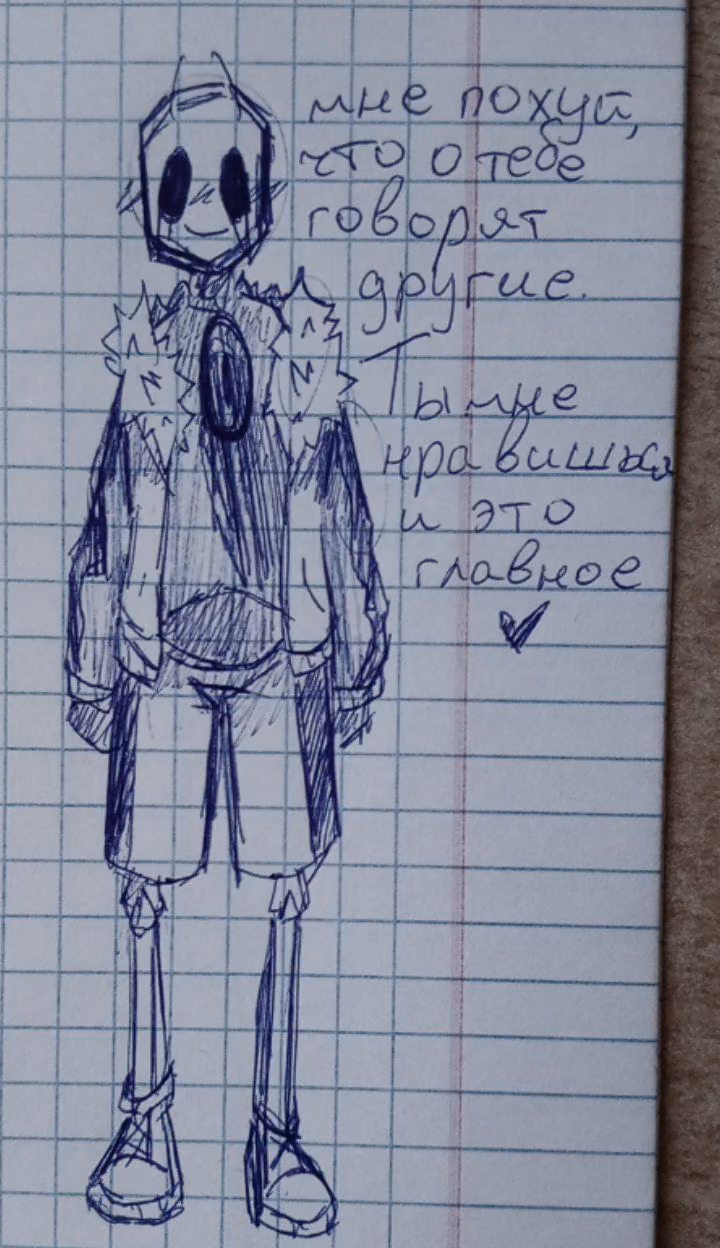 мне похуй,
что о тебе
говорят
другие.
Ты мне
нравишься
и это
главное